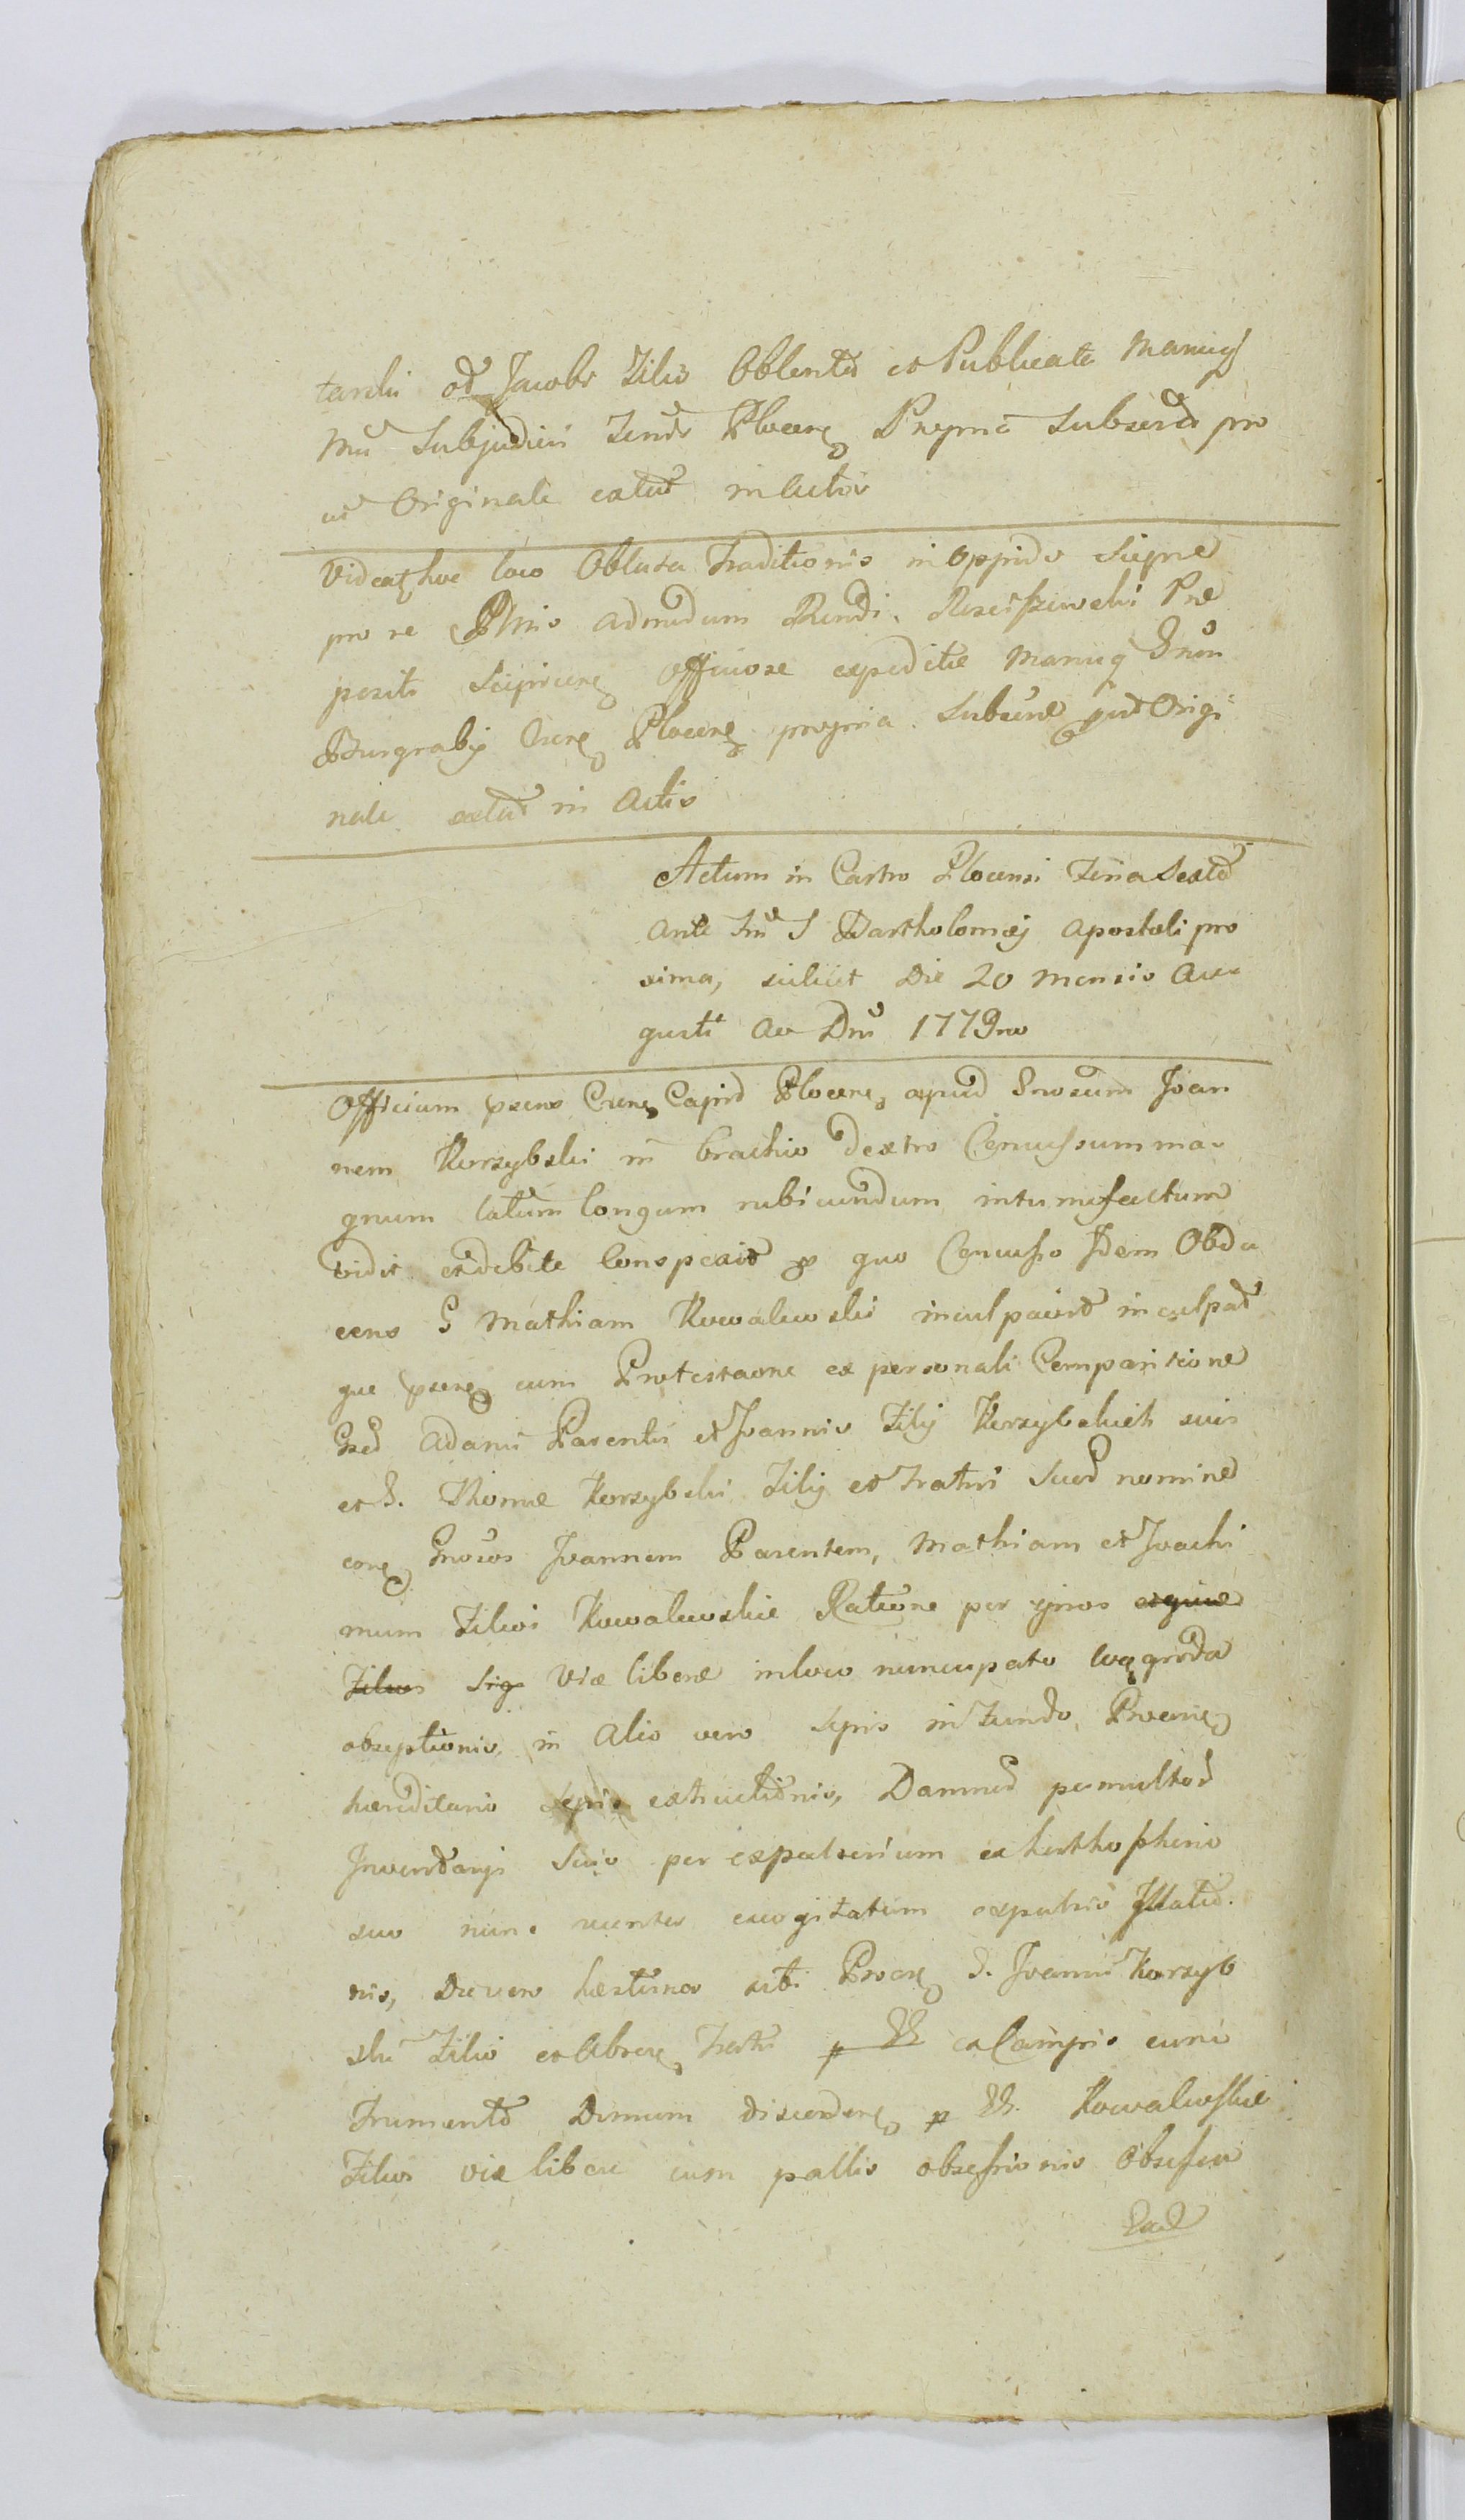 tarski et Jacobi Filio Oblente et Publicate Manuq
Mci Subjudici Terrae Plocen Propria Subscrid pro
ut Originale extat in Actis
Videatq huc loco Oblata Traditionis in Oppido Sierpc
pro re Plris admodum Rendi. Rosciszewski Prae
positi Sieprcen Officiose expeditae Manuq Gnosi
Burgrabij Cicen Plocen propria Subscrae put Origi
nale extat in Actis
Actum in Castro Plocensi Feria Sexta
ante Ftu S Bartholomaej Apostoli pro
xima, scilicet Die 20 Mensis Au
gusti Ao Dni 1779no
Officium psens Crene Capit Plocen apud Gnosum Joan
nem Korzybski in brachio dextro Concussum ma
gnum latum longum rubicundum intumefactum
vidit et debite Conspexit p quo Concusso Idem Obdu
cens G Mathiam Kowalewski inculpavit inculpat
que psens cum Protestaone ex personali Comparitione
Gsd Adami Parentis et Joannis Filij Korzybskich suis
et G. Thomae Korzybski Filij et Fratris Sued nomine
cone Gnosos Joannem Parentem, Mathiam et Joachi
mum Filios Kowalewskie Ratione per ipsos
Filios Sig Viae liberae in loco nuncupato Wągroda
obseptionis, in alio vero sepis in Fundo Procerne
haereditario Sepis extructionis, Damni permultos
Inventarji Suis per expulserium ex
suo nunc recenter excogitatum expulsis Illatio
nis, Die vero hesterna sibi Procre G. Joanni Korzyb
ski Filio et Absen Fratri p GG ex Campis cum
Frumento Domum discendere p GG. Kowalewskie
Filios viae liberae cum pallis obsessionis Obsessu
Ead